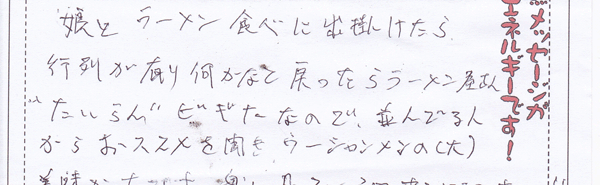 メッセージが
エネルギーです!
娘と ラーメン 食べに 出掛けたら
行列が有り何かなと戻ったらラーメン屋さん
"たいらん" ビギナーなので、並んでる人
からおススメを聞き ウーシャンメンの(大)
美味かった